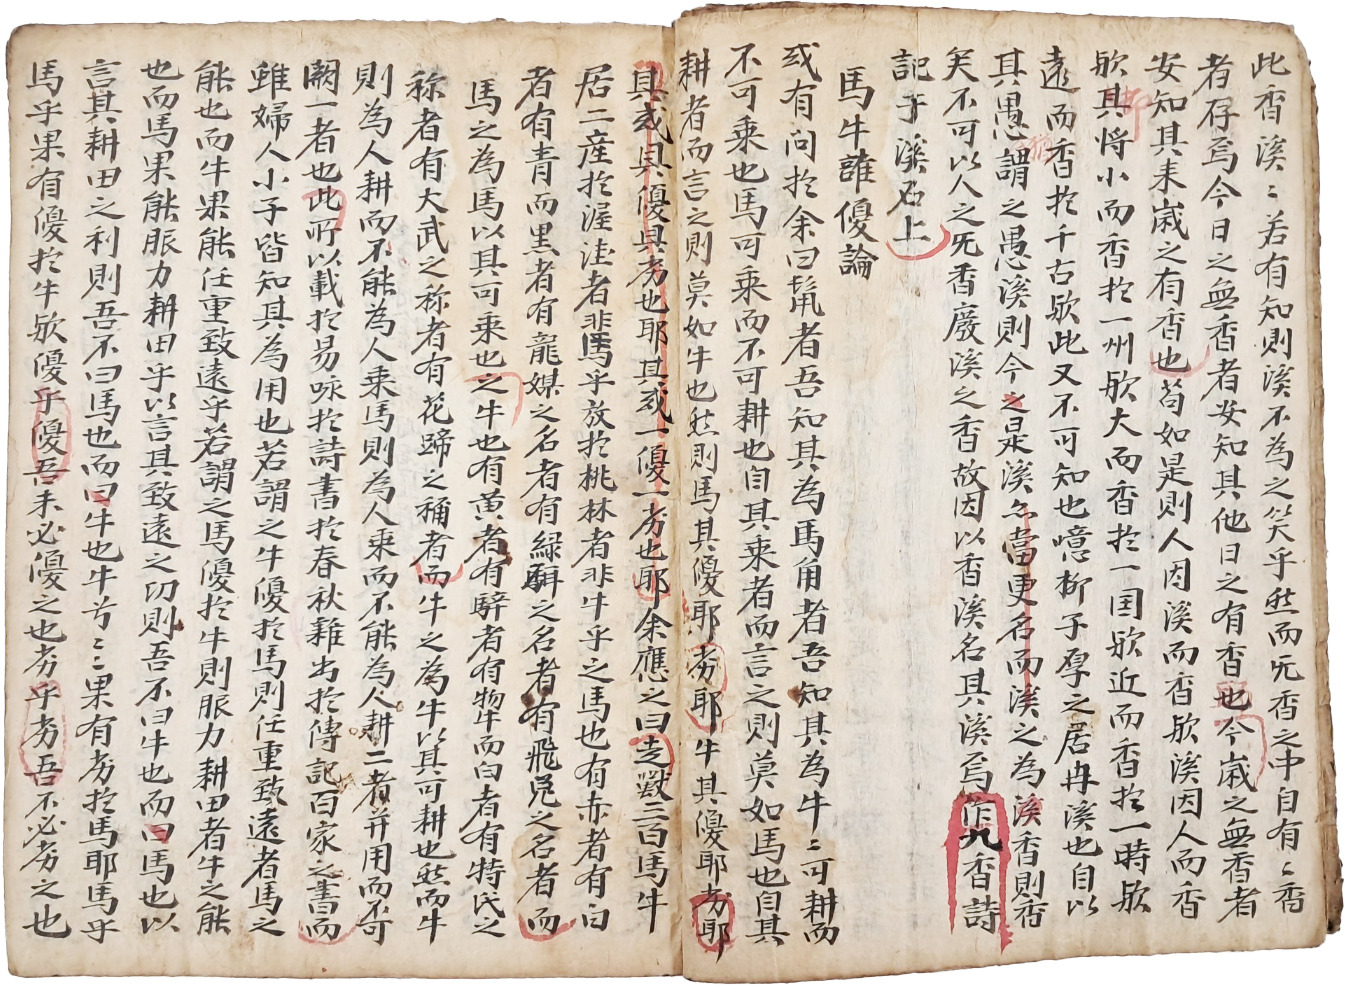 此香溪〻若有知則溪不為之笑乎然而旣香之中自有〻香
者存焉今日之無香者安知其他日之有香也今歲之無香者
安知其来歲之有香也苟如是則人因溪而香欤溪因人而香
欤其将小而香於一州欤大而香於一国欤近而香於一時欤
遠而香於千古欤此又不可知也噫柳子厚之居冉溪也自以
其愚謂之愚溪則今之是溪亦當更名而溪之為溪香則香
矣不可以人之旣香廢溪之香故因以香溪名其溪焉作九香詩
記于溪石上
馬牛誰優論
或有问於余曰鬣者吾知其為馬角者吾知其為牛〻可耕而
不可乗也馬可乗而不可耕也自其乗者而言之則莫如馬也自其
耕者而言之則莫如牛也然則馬其優耶劣耶牛其優耶劣耶
具或具優具劣也耶其或一優一劣也耶余應之曰走獸三百馬牛
居二産於渥洼者非馬乎放於桃林者非牛乎之馬也有赤者有白
者有青而黒者有龍媒之名者有緑駬之名者有飛兎之名者而
馬之為馬以其可乗也之牛也有黄者有騂者有物牛而白者有特氏之
称者有大武之称者有花蹄之稱者而牛之為牛以其可耕也然而牛
則為人耕而不能為人乗馬則為人乗而不能為人耕二者并用而不可
闕一者也此所以載於易咏於詩書於春秋雜出於傳記百家之書而
雖婦人小子皆知其為用也若謂之牛優於馬則任重致遠者馬之
能也而牛果能任重致遠乎若謂之馬優於牛則服力耕田者牛之能
也而馬果能服力耕田乎以言其致遠之功則吾不曰牛也而曰馬也以
言其耕田之利則吾不曰馬也而曰牛也牛兮〻〻果有劣於馬耶馬乎
馬乎果有優於牛欤優乎優吾未必優之也劣乎劣吾不必劣之也